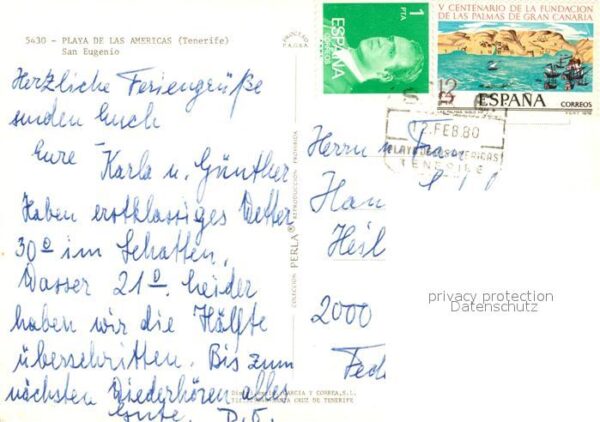 5430 - PLAYA DE LAS AMERICAS (Tenerife)
San Eugenio
Herzliche Feriengrüße
senden Euch
Eure Karla u. Günther
Haben erstklassiges Wetter
30° im Schatten,
Wasser 21°. Leider
haben wir die Hälfte
überschritten. Bis zum
nächsten Wiederhören alles
Gute. D.O.
COLECCION PERLA® REPRODUCCION PROHIBIDA
GARCIA Y CORREA, S.L.
CRUZ DE TENERIFE
1
PTA
ESPAÑA
CORREOS
V CENTENARIO DE LA FUNDACION
DE LAS PALMAS DE GRAN CANARIA
12
ESPAÑA
CORREOS
12.FEB.80
PLAYA DE LAS AMERICAS
TENERIFE
Herrn u. Frau
Han
Heil
2000
Fed
privacy protection
Datenschutz